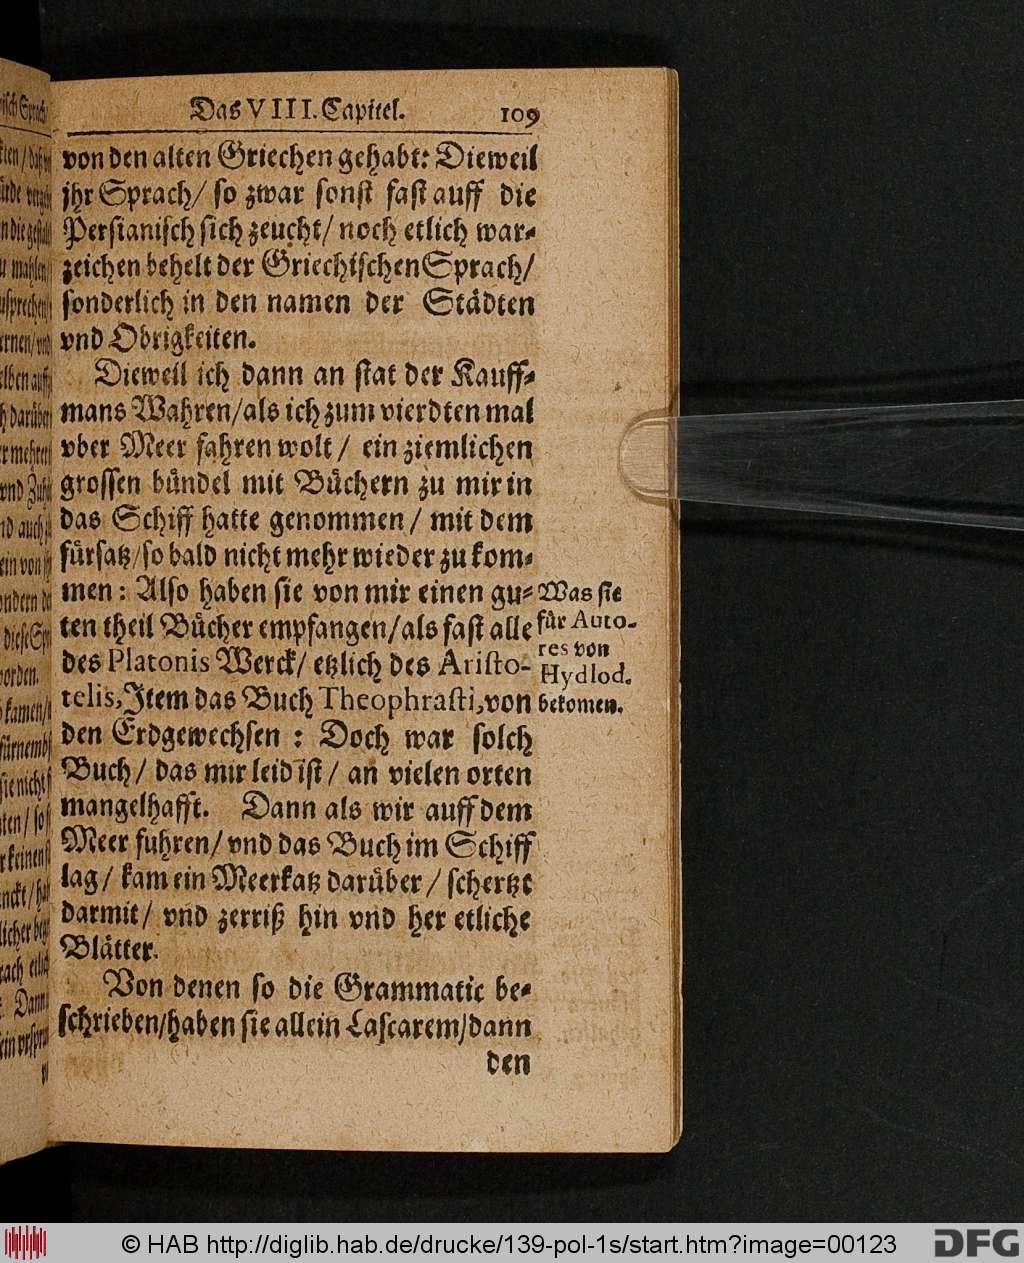 Das VIII. Capitel. 109
von den alten Griechen gehabt: Dieweil
jhr Sprach/ so zwar sonst fast auff die
Persianisch sich zeucht/ noch etlich war-
zeichen behelt der Griechischen Sprach/
sonderlich in den namen der Städten
vnd Obrigkeiten.
Dieweil ich dann an stat der Kauff-
mans Wahren/ als ich zum vierdten mal
vber Meer fahren wolt/ ein ziemlichen
grossen bündel mit Büchern zu mir in
das Schiff hatte genommen/ mit dem
fürsatz/ so bald nicht mehr wieder zu kom-
men: Also haben sie von mir einen gu-
ten theil Bücher empfangen/ als fast alle
des Platonis Werck/ etzlich des Aristo-
telis, Item das Buch Theophrasti, von
den Erdgewechsen: Doch war solch
Buch/ das mir leid ist/ an vielen orten
mangelhafft. Dann als wir auff dem
Meer fuhren/ vnd das Buch im Schiff
lag/ kam ein Meerkatz darüber/ schertzt
darmit/ vnd zerriß hin vnd her etliche
Blätter.
Von denen so die Grammatic be-
schrieben/ haben sie allein Lascarem/ dann
den
Was sie
für Auto-
res von
Hydlod.
bekomen.
© HAB http://diglib.hab.de/drucke/139-pol-1s/start.htm?image=00123
DFG